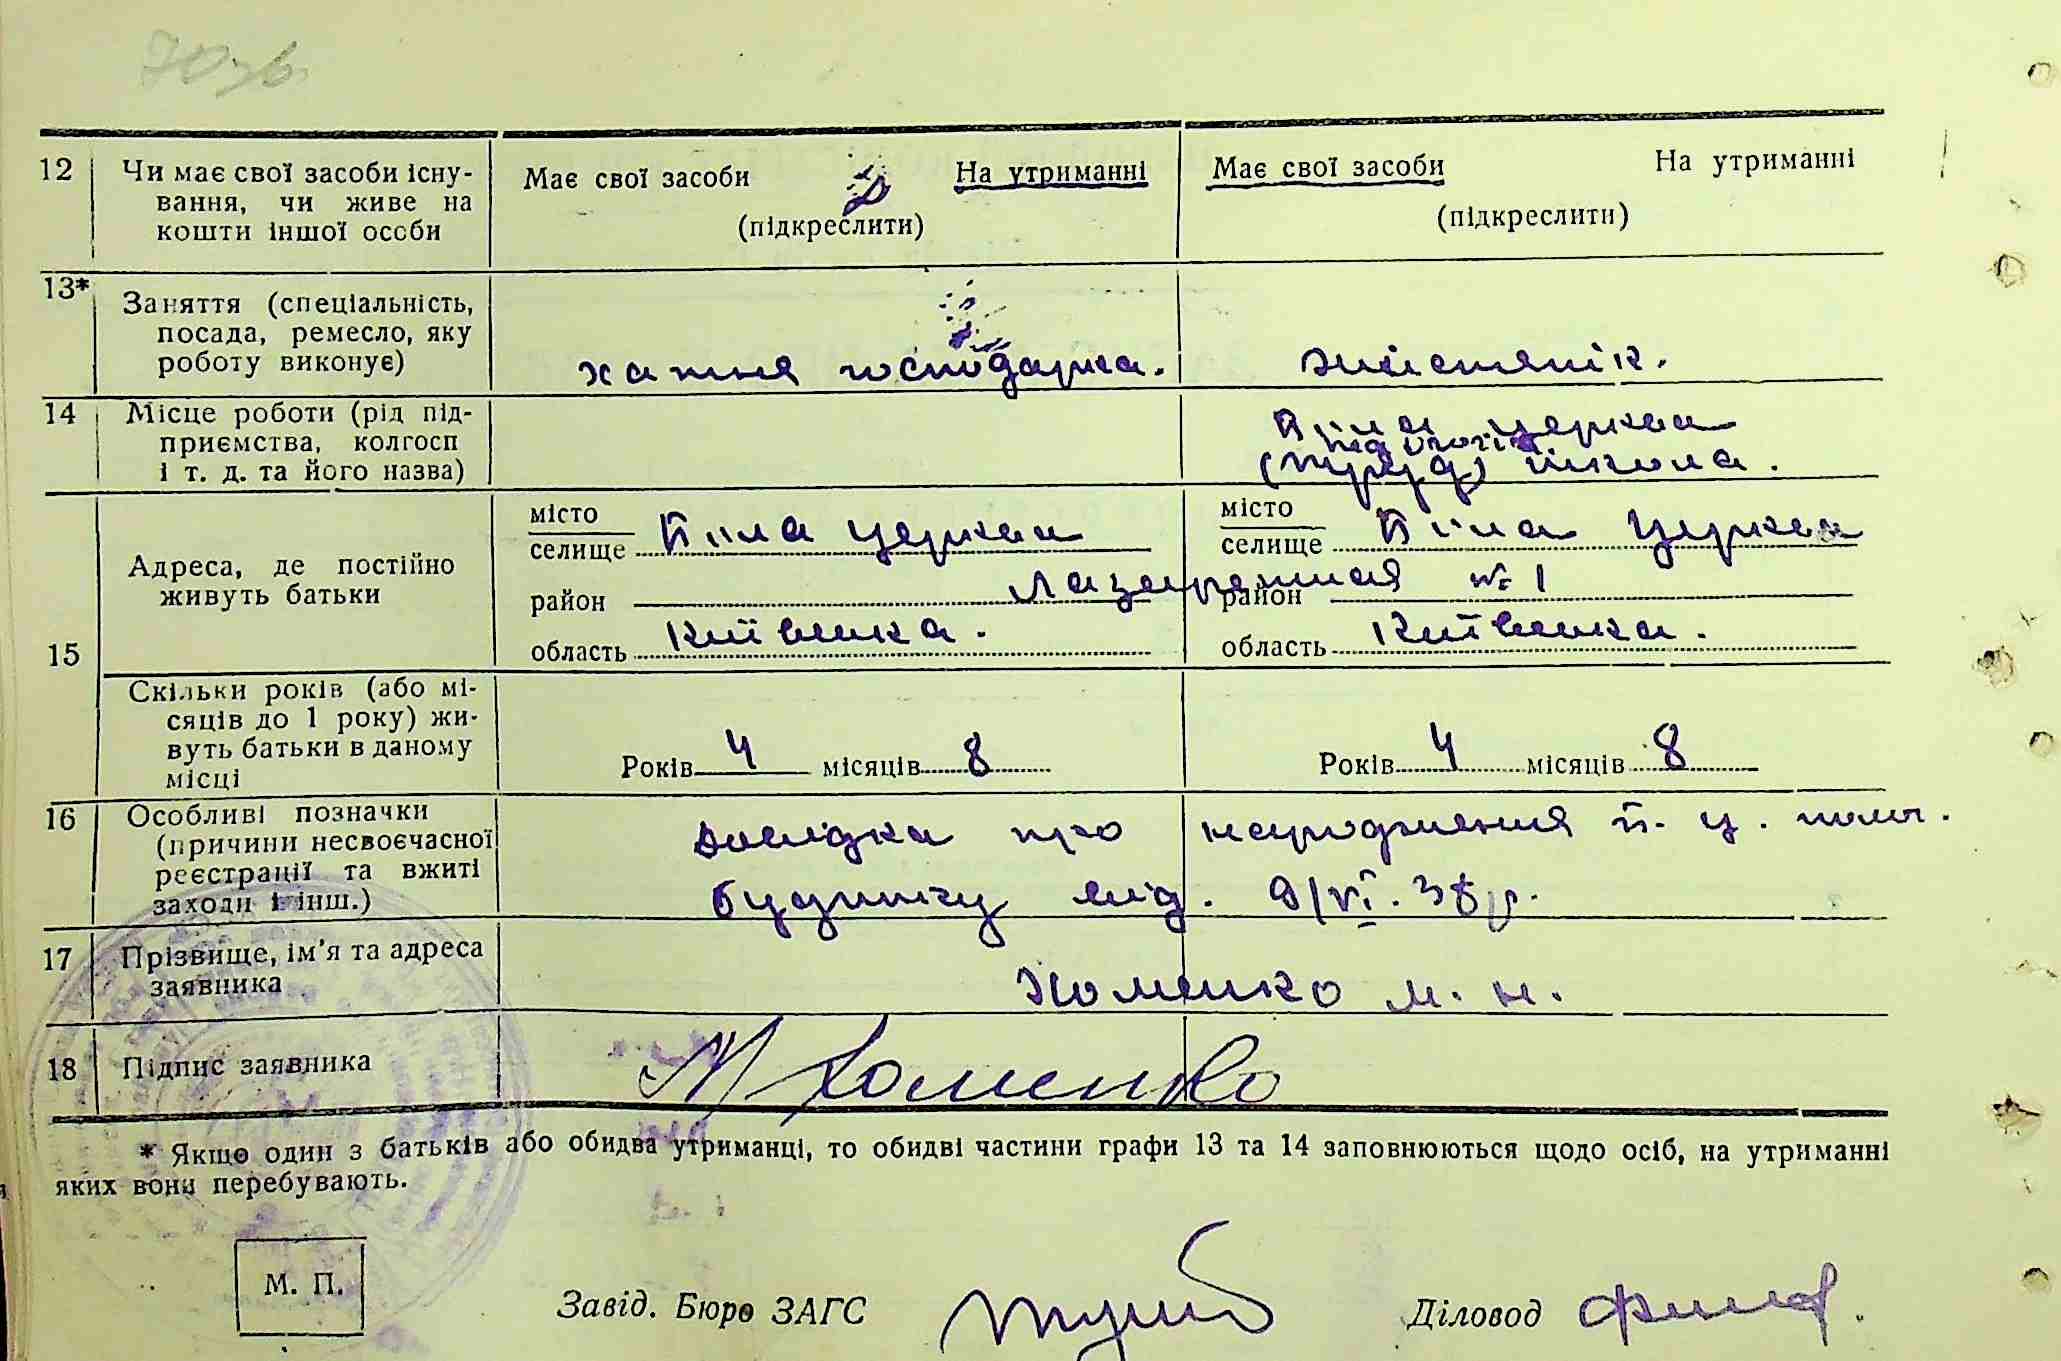 12 Чи має свої засоби існу-
вання, чи живе на
кошти іншої особи
Має свої засоби На утриманні
(підкреслити)
Має свої засоби На утриманні
(підкреслити)
13* Заняття (спеціальність,
посада, ремесло, яку
роботу виконує)
хатня господарка.
14 Місце роботи (рід під-
приємства, колгосп
і т. д. та його назва)
Біла церква
школа.
15 Адреса, де постійно
живуть батьки
місто
селище Біла церква
район
область Київська.
місто
селище Біла Церква
район № 1
область Київська.
Скільки років (або мі-
сяців до 1 року) жи-
вуть батьки в даному
місці
Років 4 місяців 8
Років 4 місяців 8
16 Особливі позначки
(причини несвоєчасної
реєстрації та вжиті
заходи і інш.)
Довідка про народження б. ц. пол.
будинку від. 9/VI. 38 р.
17 Прізвище, ім'я та адреса
заявника
Хоменко М. Н.
18 Підпис заявника
М Хоменко
* Якщо один з батьків або обидва утриманці, то обидві частини графи 13 та 14 заповнюються щодо осіб, на утриманні
яких вони перебувають.
М. П.
Завід. Бюро ЗАГС
Діловод